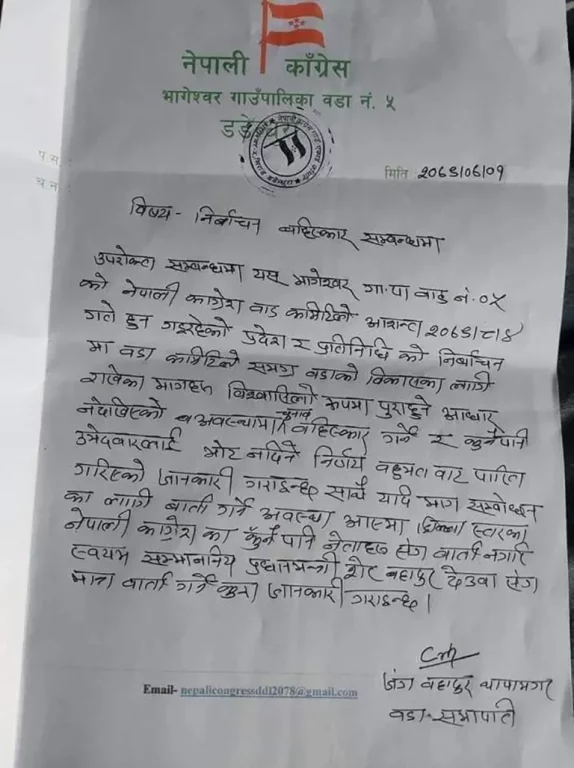 नेपाली काँग्रेस
भागेश्वर गाउँपालिका वडा नं. ५
प स
च न
मिति २०७९/०७/०१
विषय - निर्वाचन बहिस्कार सम्बन्धमा
उपरोक्त सम्बन्धमा यस भागेश्वर गा.पा वाड नं. ०५
को नेपाली काग्रेस वाड कमिटिले आशन्त २०७९/८/४
गते हुन गइरहेको प्रदेश र प्रतिनिधि को निर्वाचन
मा वडा कमिटिले समग्र वडाको विकासका लागी
राखेका मागहरु विश्वासिलो रुपमा पुराहुने आधार
नदेखिएको व अवस्थामा चुनाव बहिस्कार गर्ने र कुनैपनी
उमेदवारलाई भोट नदिने निर्णय बहुमत बाट पारित
गरिएको जानकारी गराइन्छ साथै यदि माग सम्बोधन
का लागी बार्ता गर्ने अवस्था आएमा जिल्ला स्तरका
नेपाली काग्रेस का कुँनै पनि नेताहरु संग वार्ता नगरि
स्वयम सम्माननिय प्रधानमन्त्री शेर बहादुर देउवा संग
मात्र वार्ता गर्ने कुरा जानकारी गराइन्छ।
जंग बहादुर थापामगर
वडा-सभापती
Email- nepalicongressddl2078@gmail.com